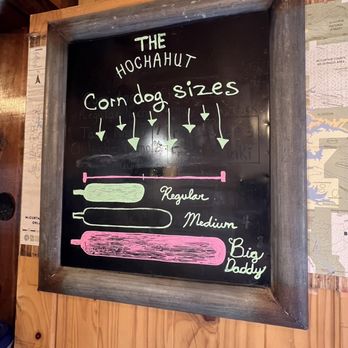 THE
HOCHAHUT
Corn dog sizes
Regular
Medium
Big
Daddy